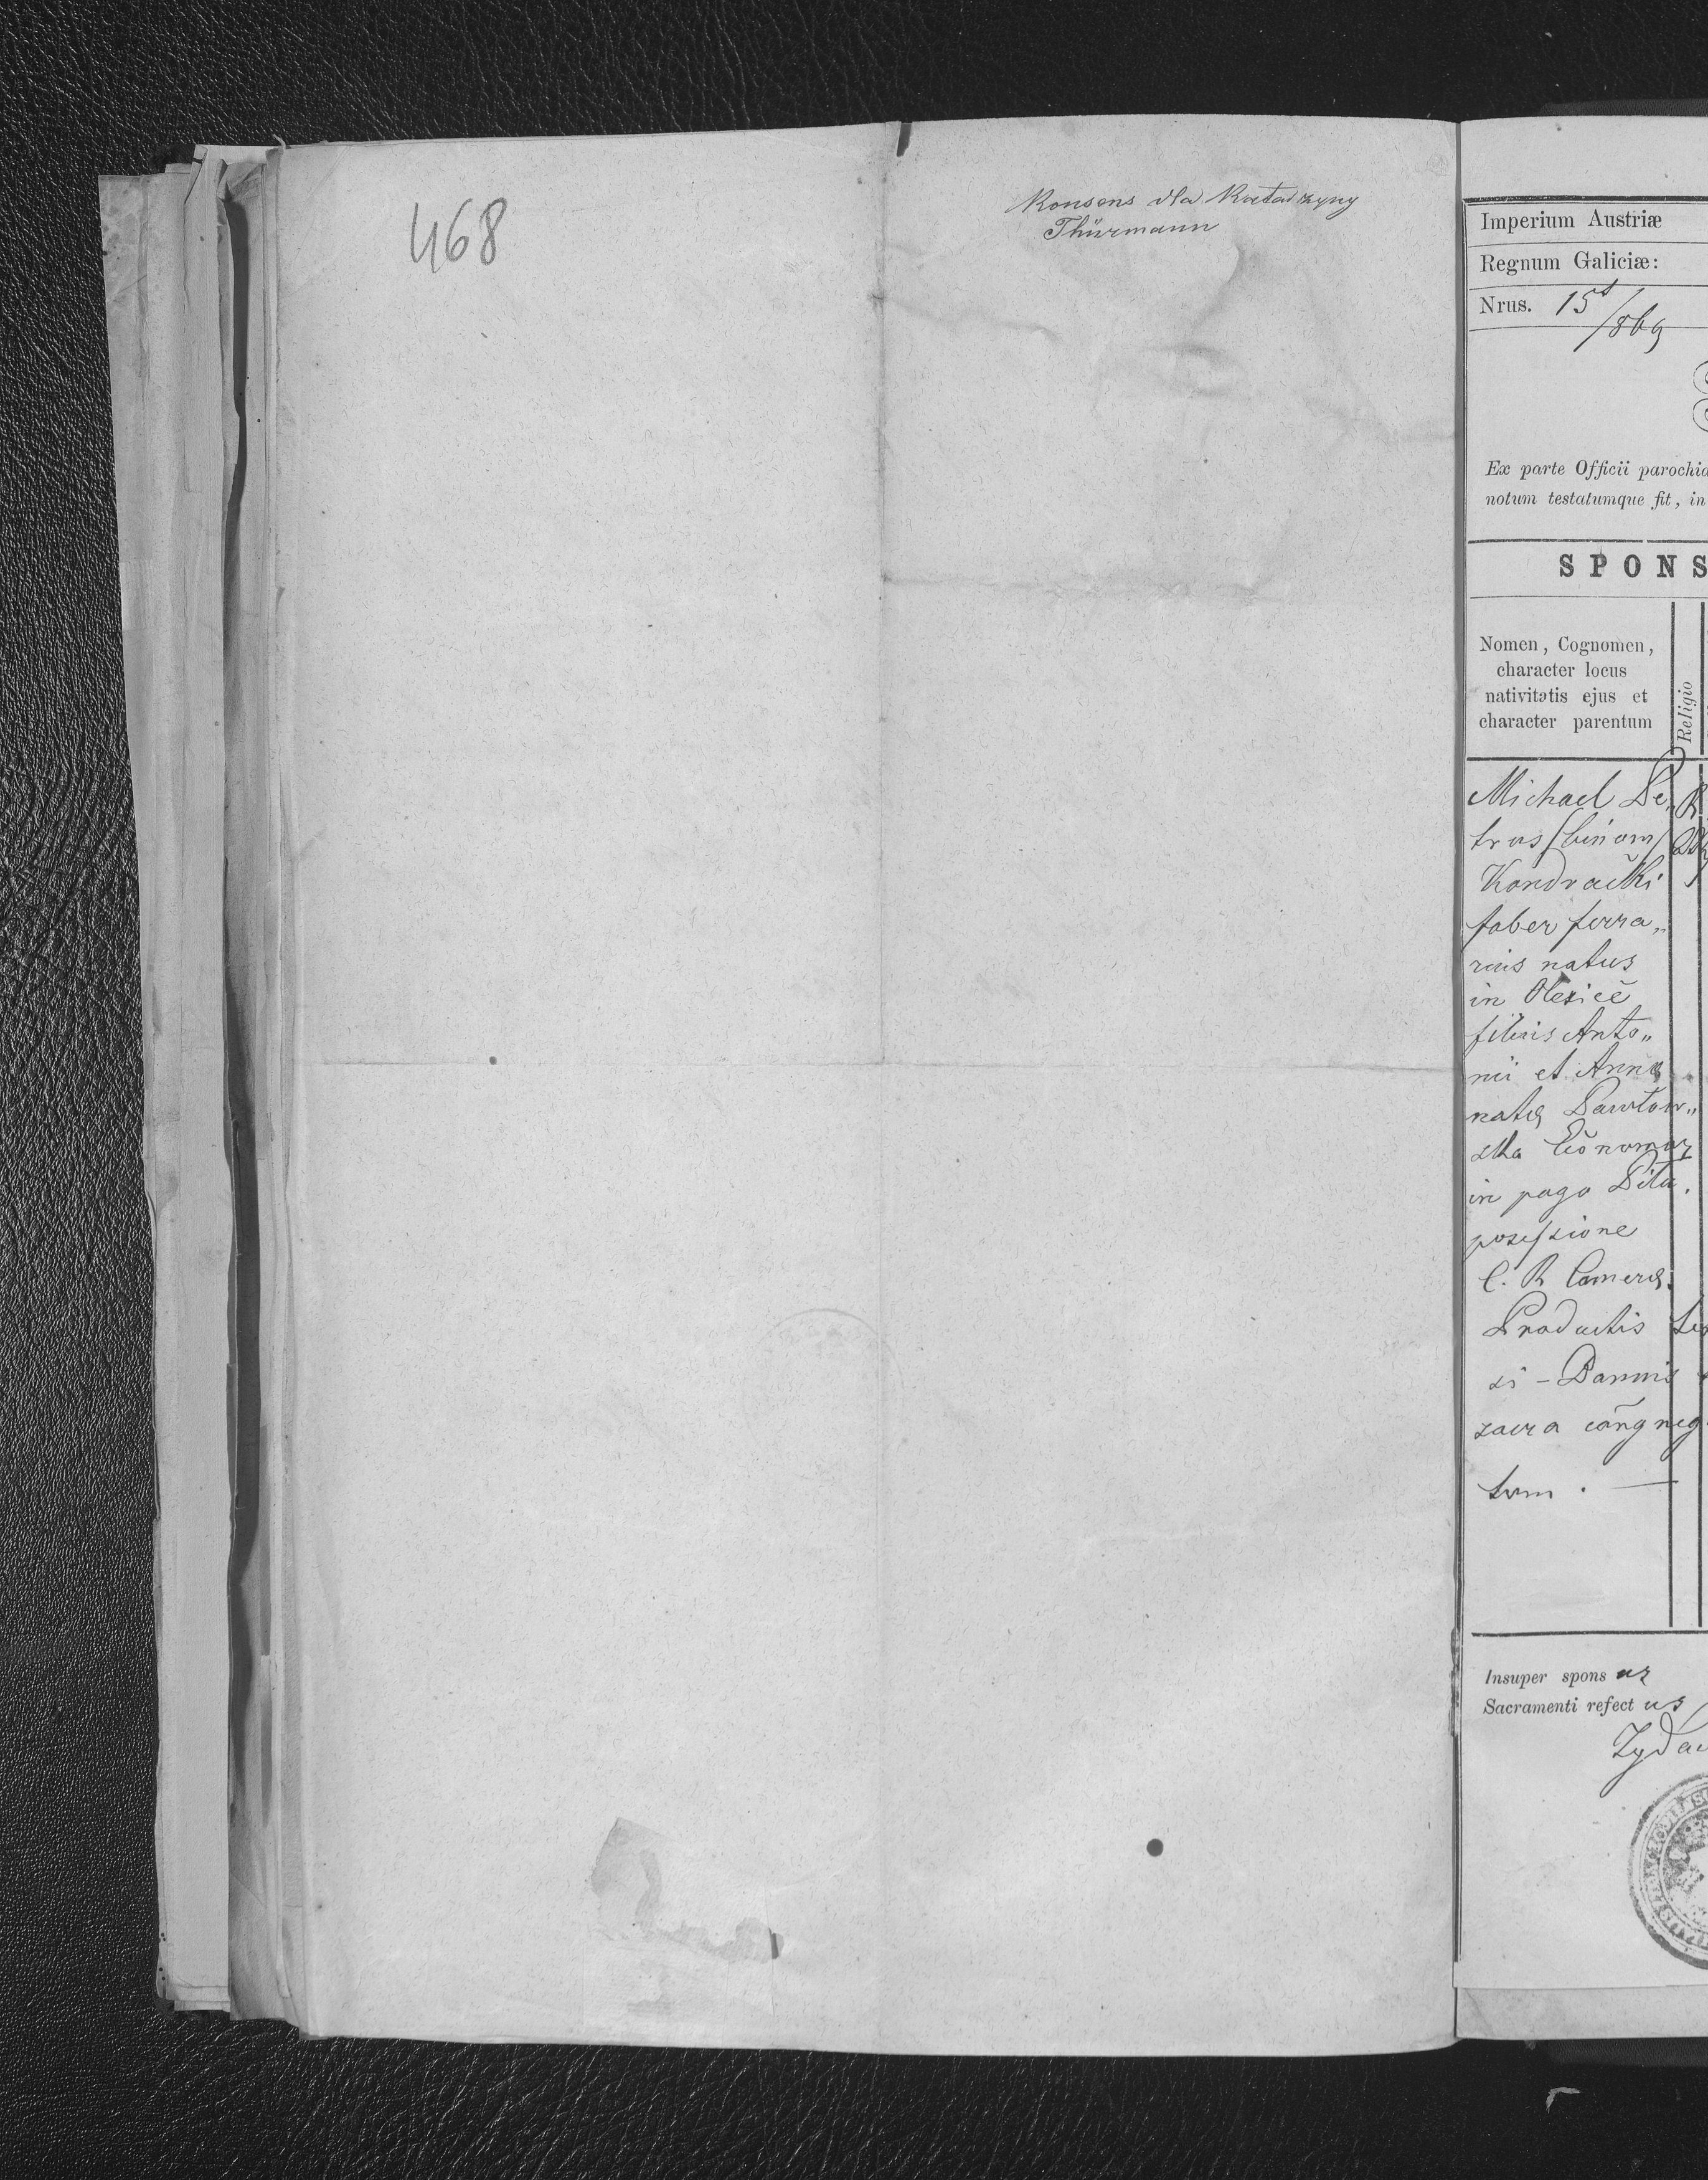 468
Konsens dla Katarzyny
Thürmann
Imperium Austriæ
Regnum Galiciæ:
Nrus. 15/869
Ex parte Officii parochia
notum testatumque fit, in
SPONS
Nomen, Cognomen,
character locus
nativitatis ejus et
character parentum
Religio
Michael Pe„
trus /binom/
Kondracki
faber ferra„
rius natus
in
filius Anto„
nii et Annæ
natæ Pawłow„
ska
in pago Piła.
posessione
C. R Cameræ.
Productis
si - Bannis
sacra
tum . —
Insuper spons us
Sacramenti refect us